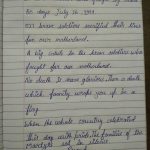 60 days July 26 1999.
our brave soldiers sacrificed their lives
for our motherland.
A big salute to the brave soldiers who
fought for our motherland.
No death is more glorious than a death
which finally wraps you up in a
flag.
When the whole country celebrated
This day with pride, the families of the
Martyrs